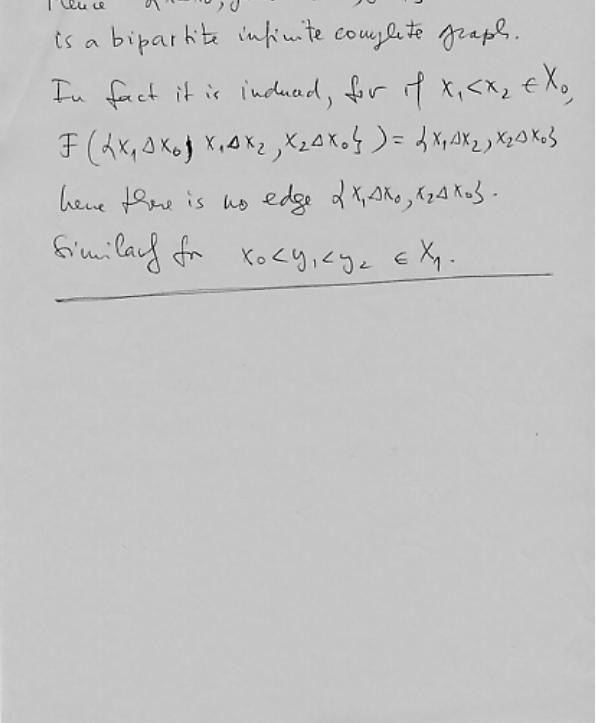 is a bipartite infinite complete graph.
In fact it is induced, for if x₁<x₂ ∈ X₀,
F({x₁Δx₀, x₁Δx₂, x₂Δx₀}) = {x₁Δx₂, x₂Δx₀}
hence there is no edge {x₁Δx₀, x₂Δx₀}.
Similarly for x₀<y₁<y₂ ∈ X₁.